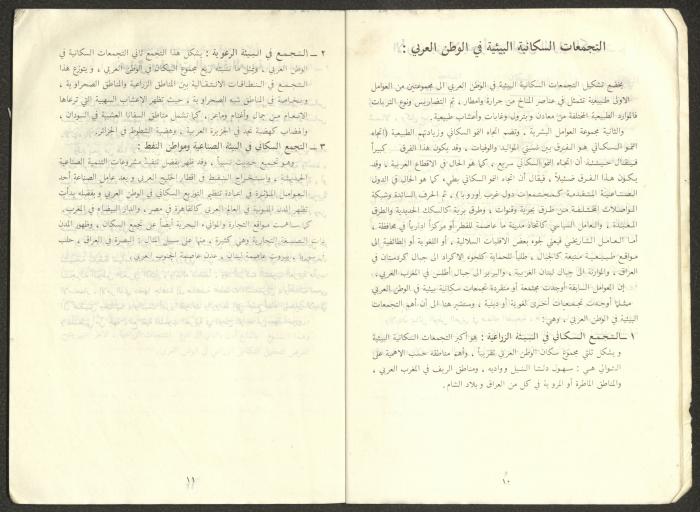 التجمعات السكانية البيئية في الوطن العربي :
يخضع تشكيل التجمعات السكانية البيئية في الوطن العربي الى مجموعتين من العوامل
الاولى طبيعية تتمثل في عناصر المناخ من حرارة وامطار ، ثم التضاريس ونوع التربات
فالموارد الطبيعية المختلفة من معادن وبترول وغابات وأعشاب طبيعية .
والثانية مجموعة العوامل البشرية . وتضم اتجاه النمو السكاني وزيادتهم الطبيعية (اتجاه
النمو السكاني هو الفرق بين نسبتي المواليد والوفيات ، وقد يكون هذا الفرق كبيراً
فيقال حينئذ أن اتجاه النمو السكاني سريع ، كما هو الحال في الاقطار العربية ، وقد
يكون هذا الفرق ضئيلاً ، فيقال أن اتجاه النمو السكاني بطيء ، كما هو الحال في الدول
الصناعية المتقدمة كمجتمعات دول غرب أوروبا) ، ثم الحرف السائدة وشبكة
المواصلات المختلفة من طرق بحرية وقنوات ، وطرق برية كالسكك الحديدية والطرق
المعبدة ، والعامل السياسي كاتخاذ مدينة ما عاصمة للقطر أو مركزاً ادارياً في محافظة ،
أما العامل التاريخي فيعني لجوء بعض الاقليات السلالية ، أو اللغوية أو الطائفية الى
مواقع طبيعية منيعة كالجبال ، طلباً للحماية كلجوء الاكراد الى جبال كردستان في
العراق ، والموارنة الى جبال لبنان الغربية ، والبربر الى جبال أطلس في المغرب العربي .
إن العوامل السابقة أوجدت مجتمعة أو منفردة تجمعات سكانية بيئية في الوطن العربي
مثلما أوجدت تجمعات أخرى لغوية أو دينية ، وسنشير هنا الى أن أهم التجمعات
البيئية في الوطن العربي ، وهي :
١ ــ التجمع السكاني في البيئة الزراعية : هو أكبر التجمعات السكانية البيئية
و يشكل ثلثي مجموع سكان الوطن العربي تقريباً ، وأهم مناطقه حسب الاهمية على
التوالي هي : سهول دلتا النيل وواديه ، ومناطق الريف في المغرب العربي ،
والمناطق الماطرة أو المروية في كل من العراق و بلاد الشام .
١٠
٢ ــ التجمع في البيئة الرعوية : يشكل هذا التجمع ثاني التجمعات السكانية في
الوطن العربي ، وتمثل ما نسبته ربع مجموع السكان في الوطن العربي ، و يتوزع هذا
التجمع في النطاقات الانتقالية بين المناطق الزراعية والمناطق الصحراوية ،
وبخاصة في المناطق شبه الصحراوية ، حيث تظهر الاعشاب السهبية التي ترعاها
الانعام من جمال وأغنام وماعز . كما تشمل مناطق السفانا العشبية في السودان ،
والهضاب كهضبة نجد في الجزيرة العربية ، وهضبة الشطوط في الجزائر .
٣ ــ التجمع السكاني في البيئة الصناعية ومواطن النفط :
وهو تجمع حديث نسبياً ، وقد ظهر بفضل تنفيذ مشروعات التنمية الصناعية
الحديثة ، واستخراج النفط في اقطار الخليج العربي و يعد عامل الصناعة أحد
العوامل المؤثرة في اعادة تنظيم التوزيع السكاني في الوطن العربي و بفضله بدأت
تظهر المدن المليونية في العالم العربي كالقاهرة في مصر ، والدار البيضاء في المغرب .
كما ساهمت مواقع التجارة والموانىء البحرية أيضاً على تجمع السكان ، وظهور المدن
ذات الصبغة التجارية وهي كثيرة ، منها على سبيل المثال : البصرة في العراق ، حلب
في سوريا ، بيروت عاصمة لبنان ، عدن عاصمة الجنوب العربي .
١١